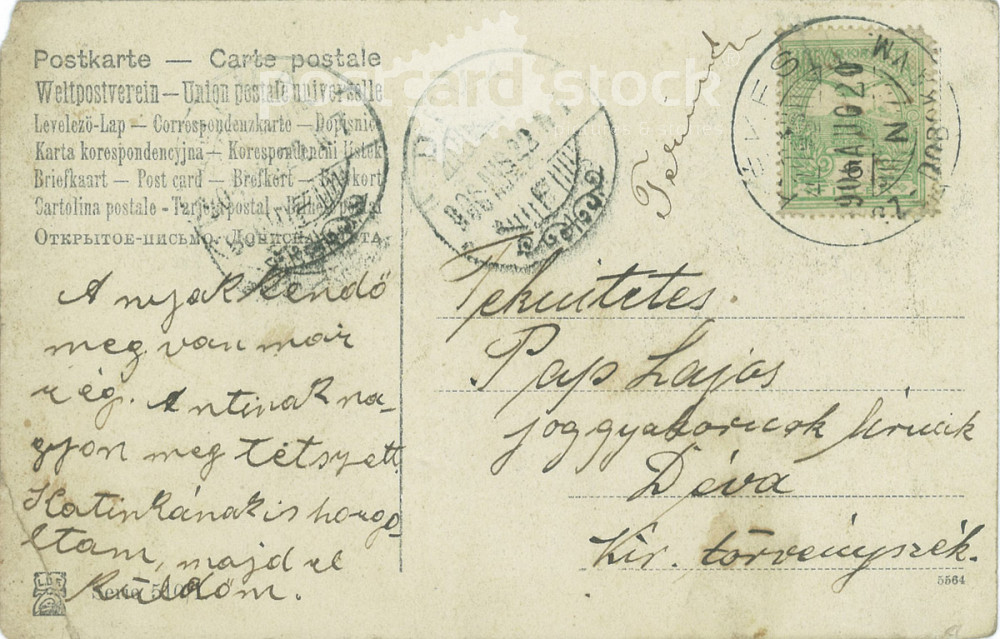 Postkarte — Carte postale
Weltpostverein — Union postale universelle
Levelező-Lap — Correspondenzkarte — Dopisnice
Karta korespondencyjna — Korespondenční lístek
Briefkaart — Post card — Brefkort — Brevkort
Cartolina postale - Tarjeta postal -
Открытое-письмо.
postcard stock
906 AUG 20
906 AUG 22
A nyakkendő
meg van már
rég. Antinak na-
gyon meg tetszett
Katinkának is horgo
ltam, majd el
küldöm.
Tekintetes
Pap Lajos
joggyakornok úrnak
Déva
Kir. törvényszék.
5564